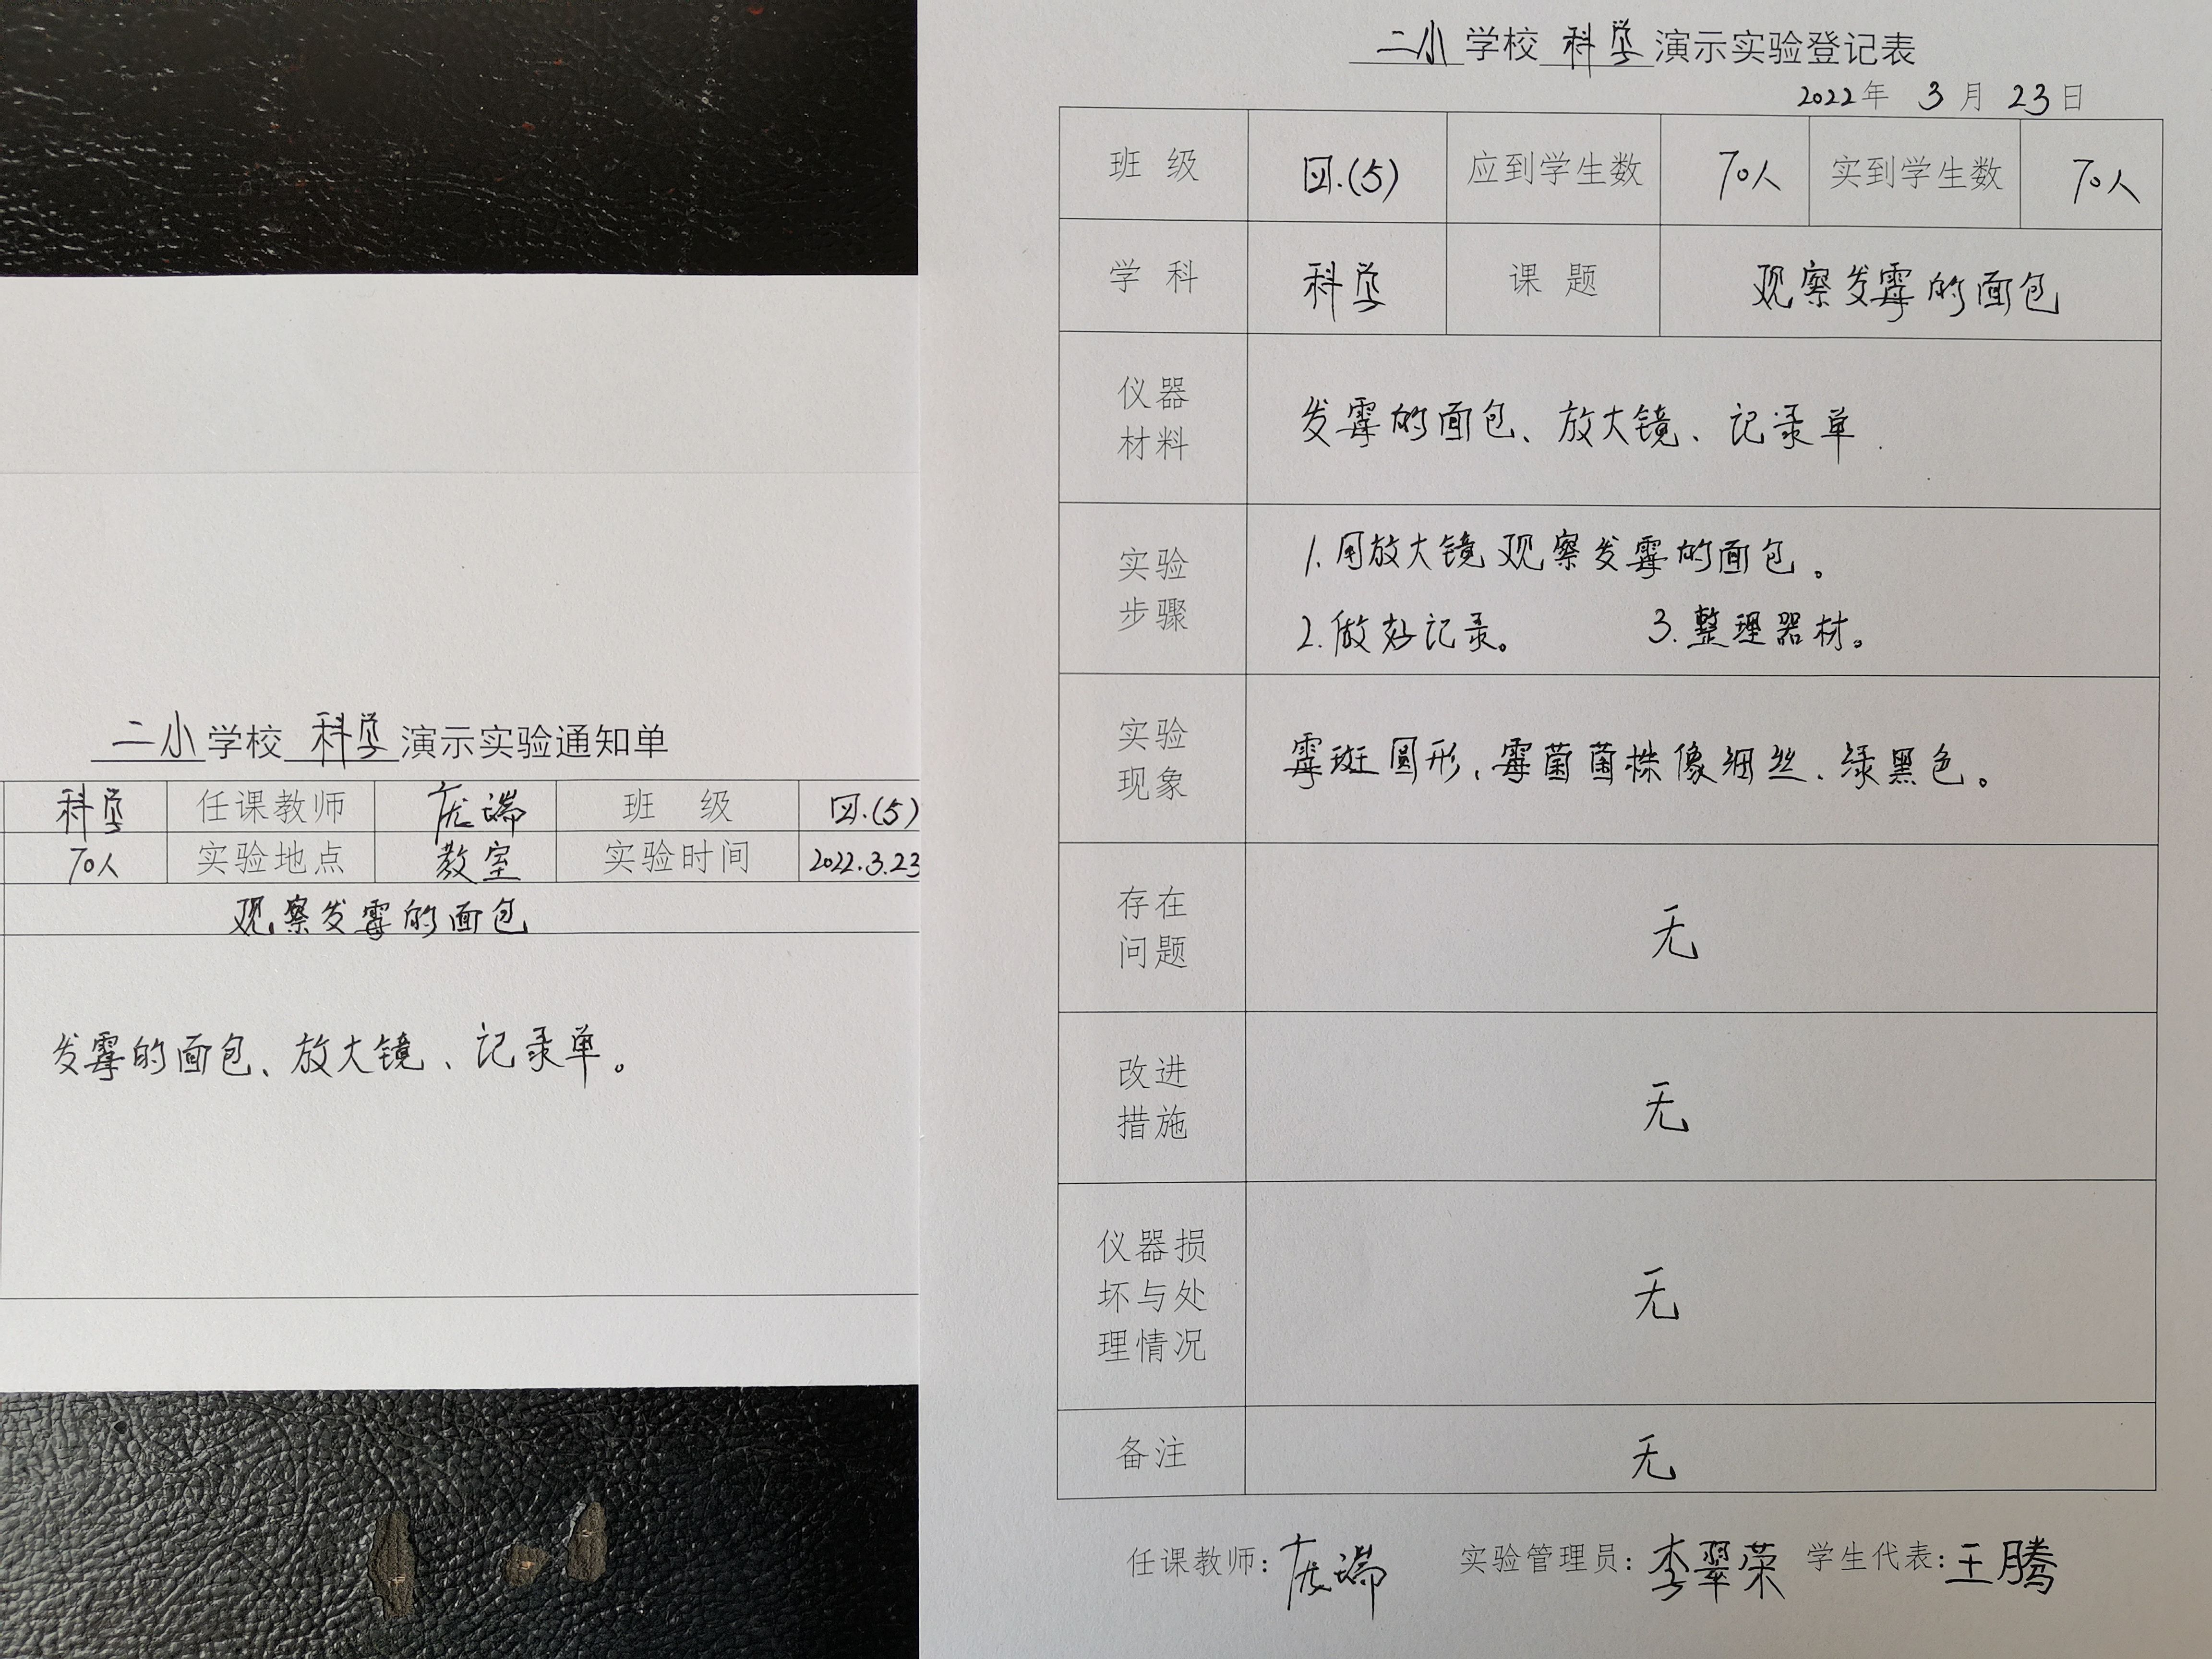 二小学校科学演示实验通知单
科学 任课教师 庞端 班 级 四.(5)
70人 实验地点 教室 实验时间 2022.3.23
观察发霉的面包
发霉的面包、放大镜、记录单。
二小学校科学演示实验登记表
2022年 3月 23日
班 级 四.(5) 应到学生数 70人 实到学生数 70人
学 科 科学 课 题 观察发霉的面包
仪器
材料
发霉的面包、放大镜、记录单.
实验
步骤
1.用放大镜观察发霉的面包。
2.做好记录。 3.整理器材。
实验
现象
霉斑圆形、霉菌菌株像细丝、绿黑色。
存在
问题
无
改进
措施
无
仪器损
坏与处
理情况
无
备注 无
任课教师:庞端 实验管理员:李翠荣 学生代表:王腾